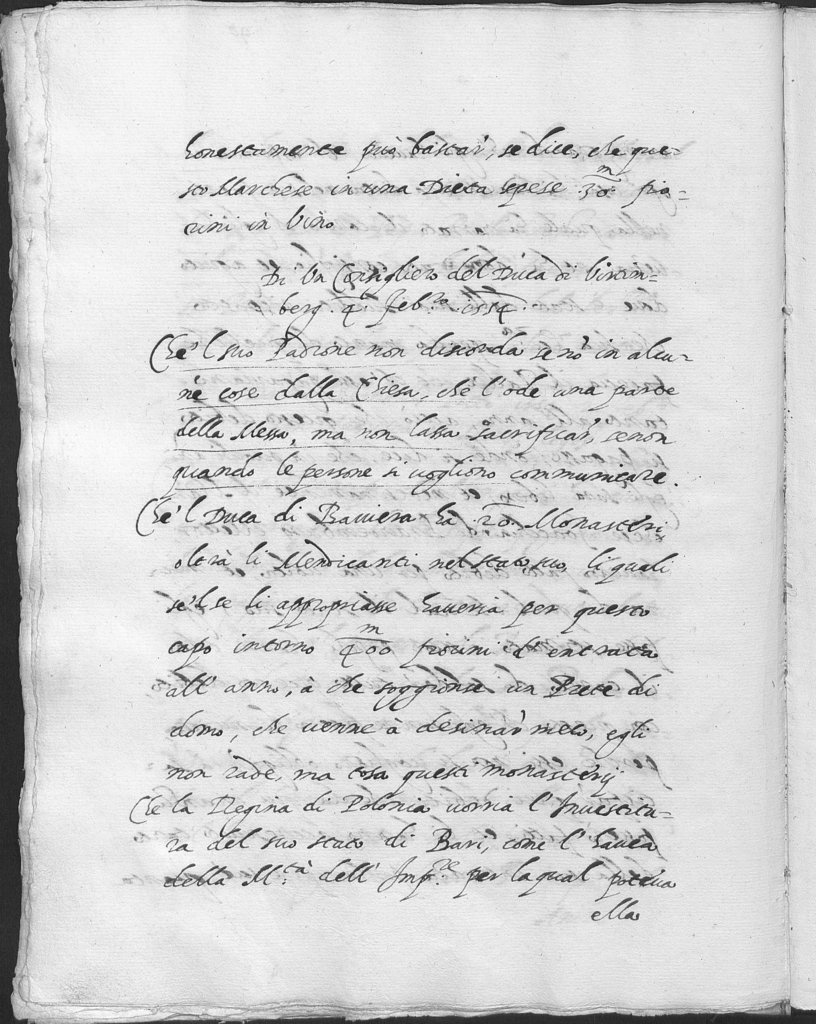 honestamente può bastar', se dice, che que-
sto Marchese in una Dieta spese 30.m fio-
rini in Vino.
Di Un Consigliero del Duca di Virtim-
berg. 4. Feb.ro 1554.
Che'l suo Padrone non discorda se nō in alcu-
nè cose dalla Chiesa, che l'ode una parte
della Messa, ma non lassa sacrificar', senon
quando le persone si vogliono communicare.
Che'l Duca di Baviera ha .20. Monasteri
oltrà li Mendicanti nel stato suo, li quali
se'l se li appropriasse haveria per questo
capo intorno 400m fiorini d'entrata
all'anno, à che soggionse un Prete di
domo, che venne à desinar' meco, egli
non rade, ma tosa questi monasterij
Che la Regina di Polonia vorria l'Investitu-
ra del suo stato di Bari, come l'havea
della M.tà dell'Imp.re per la qual poteva
ella